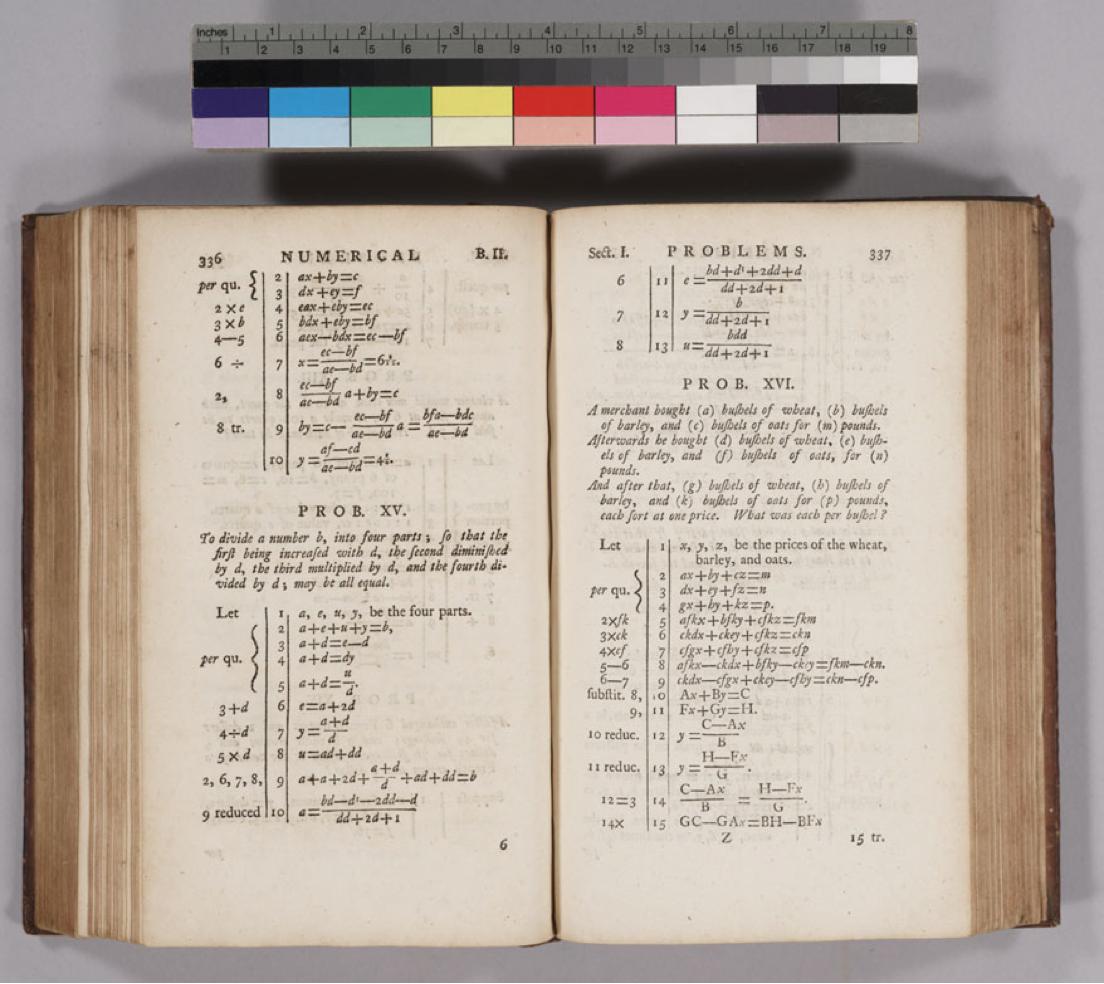 Inches 1 2 3 4 5 6 7 8
1 2 3 4 5 6 7 8 9 10 11 12 13 14 15 16 17 18 19
336 NUMERICAL B. II.
per qu. { 2 ax+by=c
3 dx+ey=f
2×e 4 eax+eby=ec
3×b 5 bdx+eby=bf
4—5 6 aex—bdx=ec—bf
6 ÷ 7 x=ec—bf/ae—bd=6
2, 8 ec—bf/ae—bd a+by=c
8 tr. 9 by=c— ec—bf/ae—bd a= bfa—bdc/ae—bd
10 y= af—cd/ae—bd=4
PROB. XV.
To divide a number b, into four parts; ſo that the
firſt being increaſed with d, the ſecond diminiſhed
by d, the third multiplied by d, and the fourth di-
vided by d; may be all equal.
Let 1 a, e, u, y, be the four parts.
per qu. { 2 a+e+u+y=b,
3 a+d=e—d
4 a+d=dy
5 a+d=u/d.
3+d 6 e=a+2d
4÷d 7 y=a+d/d
5×d 8 u=ad+dd
2, 6, 7, 8, 9 a+a+2d+a+d/d+ad+dd=b
9 reduced 10 a=bd—d³—2dd—d/dd+2d+1
6
Sect. I. PROBLEMS. 337
6 11 e=bd+d³+2dd+d/dd+2d+1
7 12 y=b/dd+2d+1
8 13 u=bdd/dd+2d+1
PROB. XVI.
A merchant bought (a) buſhels of wheat, (b) buſhels
of barley, and (c) buſhels of oats for (m) pounds.
Afterwards he bought (d) buſhels of wheat, (e) buſh-
els of barley, and (f) buſhels of oats, for (n)
pounds.
And after that, (g) buſhels of wheat, (h) buſhels of
barley, and (k) buſhels of oats for (p) pounds,
each ſort at one price. What was each per buſhel?
Let 1 x, y, z, be the prices of the wheat,
barley, and oats.
per qu. { 2 ax+by+cz=m
3 dx+ey+fz=n
4 gx+hy+kz=p.
2×fk 5 afkx+bfky+cfkz=fkm
3×ck 6 ckdx+ckey+cfkz=ckn
4×cf 7 cfgx+cfhy+cfkz=cfp
5—6 8 afkx—ckdx+bfky—ckey=fkm—ckn.
6—7 9 ckdx—cfgx+ckey—cfhy=ckn—cfp.
ſubſtit. 8, 10 Ax+By=C
9, 11 Fx+Gy=H.
10 reduc. 12 y=C—Ax/B
11 reduc. 13 y=H—Fx/G.
12=3 14 C—Ax/B = H—Fx/G.
14× 15 GC—GAx=BH—BFx
Z 15 tr.